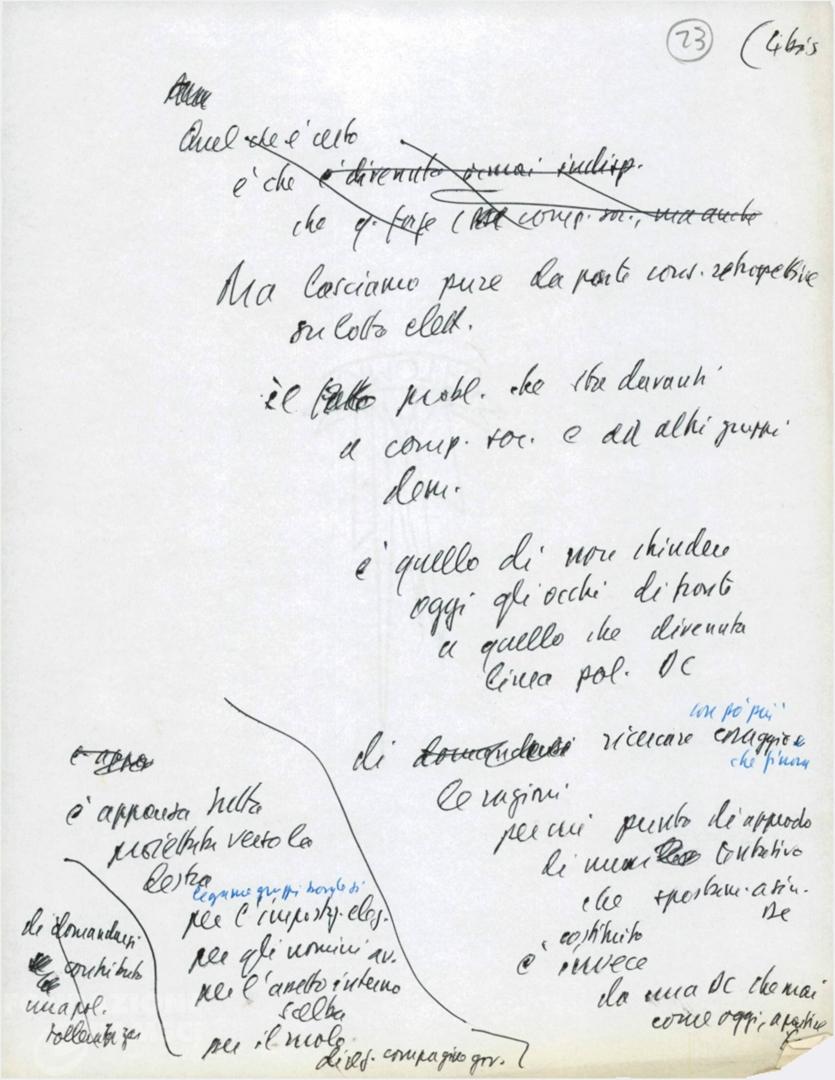 23
Quel che è certo
è che è divenuto ormai indisp.
che q. forze comp. soc., ma anche
Ma lasciamo pure da parte cons. retrospettive
su lotta elett.
il probl. che sta davanti
a comp. soc. e ad altri gruppi
dem.
è quello di non chiudere
oggi gli occhi di fronte
a quello che divenuta
linea pol. DC
con pò più
di domandarsi ricercare coraggio
che finora
le ragioni
per cui punto di approdo
di tentativo
che spostam. a sin.
costituito
è invece
da una DC che mai
come oggi, a partire
e appa
è apparsa tutta
proiettata verso la
destra
legame gruppi borghesi
per l'impostaz. eleg.
per gli uomini av.
per l'assetto interno
scelba
per il ruolo
compagine gov.
di domandarsi
contributo
una pol.